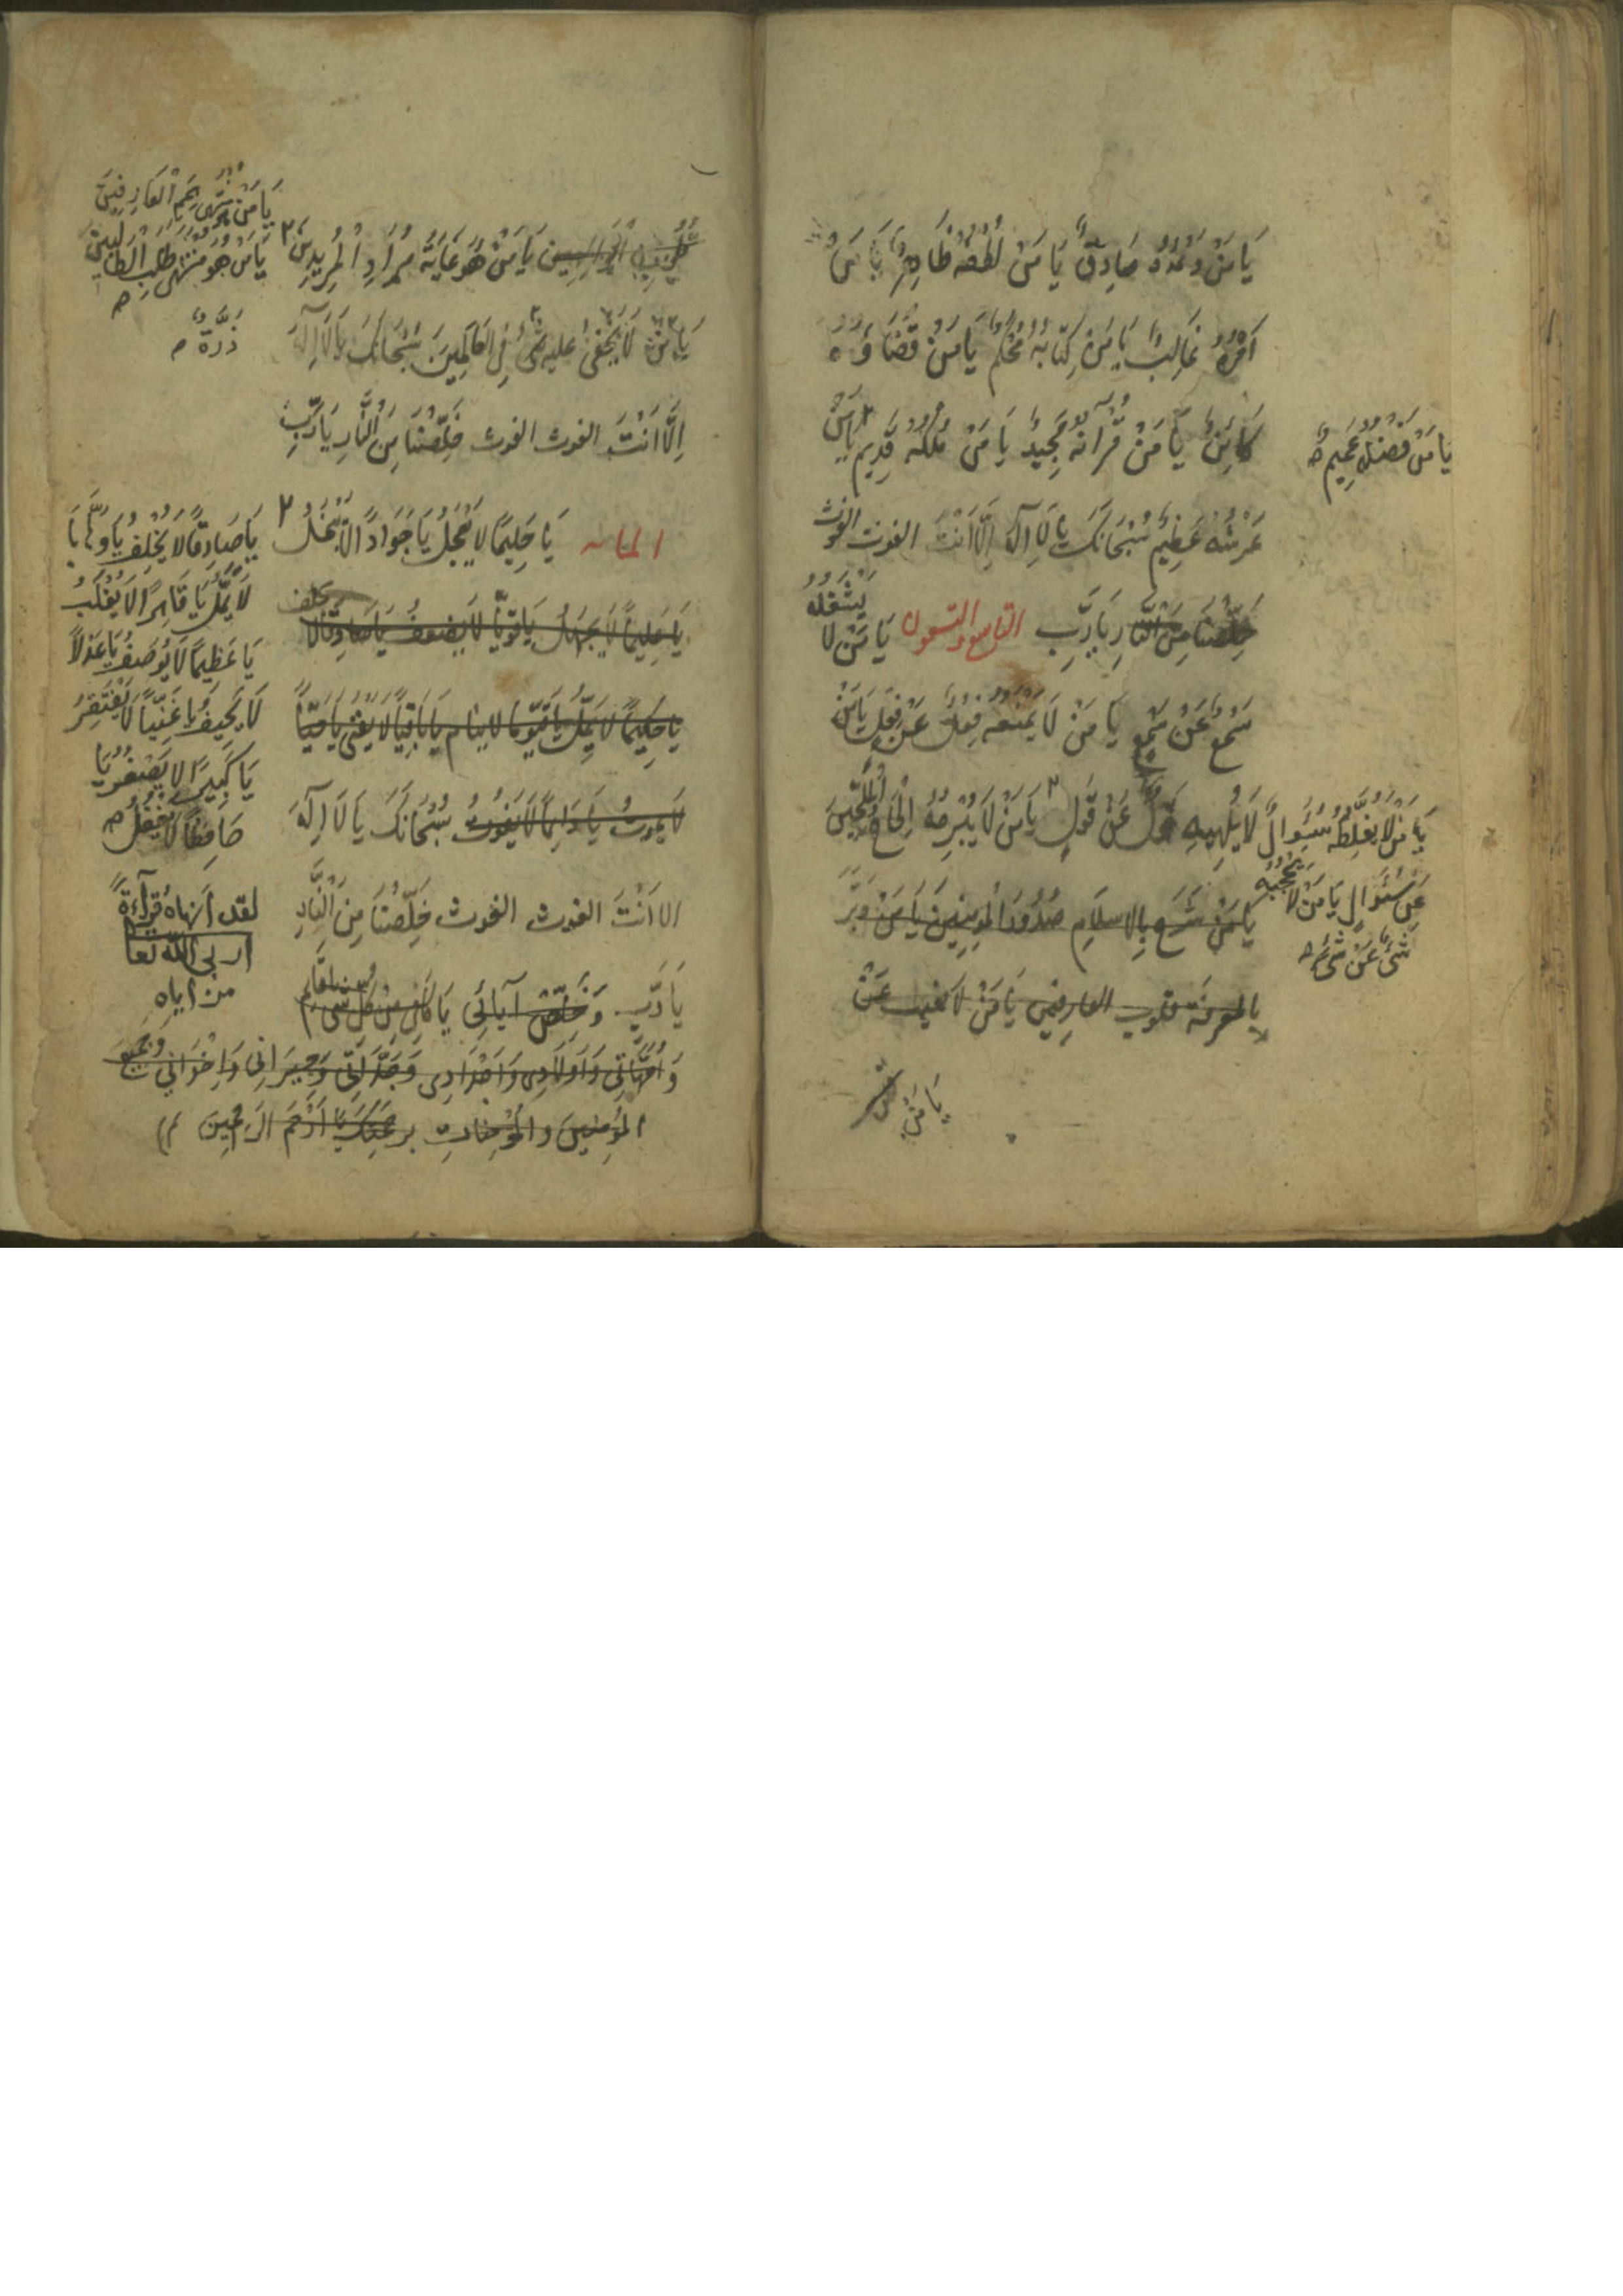 يَا مَنْ وَعْدُهُ صَادِقٌ يَا مَنْ لُطْفُهُ ظَاهِرٌ يَا مَنْ
اَمْرُهُ غَالِبٌ يَا مَنْ كِتَابُهُ مُحْكَمٌ يَا مَنْ قَضَاؤُهُ
كَائِنٌ يَا مَنْ قُرْآنُهُ مَجِيدٌ يَا مَنْ مُلْكُهُ قَدِيمٌ ٢ يَا مَنْ
يَا مَنْ فَضْلُهُ عَمِيمٌ
عَرْشُهُ عَظِيمٌ سُبْحَانَكَ يَا لَا اِلَهَ اِلَّا اَنْتَ الغوث الغوث
خَلِّصْنَا مِنَ النَّارِ يَا رَبِّ التاسع والتسعون يَا مَنْ لا يَشْغَلُهُ
سَمْعٌ عَنْ سَمْعٍ يَا مَنْ لَا يَمْنَعُهُ فِعْلٌ عَنْ فِعْلٍ يَا مَنْ
لَا يُلْهِيهِ قَوْلٌ عَنْ قَوْلٍ ٢ يَا مَنْ لَا يُبْرِمُهُ اِلْحَاحُ الْمُلِحِّينَ
يَا مَنْ لَا يُغَلِّطُهُ سُئَوالٌ
عَنْ سُئَوالٍ يَا مَنْ لَا يَحْجُبُهُ
شَىْءٌ عَنْ شَىْءٍ
يَا مَنْ شَرَحَ بِالاسلَامِ صُدُورَ الْمُومِنِينَ يَا مَنْ
بالمعرفة قلوب العارفين يَا مَنْ لا يغيب عَنْ
يَا مَنْ
الْوَاهِبِين يَا مَنْ هُوَ غَايَةُ مُرَادِ الْمُرِيدِينَ ٢
يَا مَنْ هُوَ مُنْتَهَى هِمَمِ الْعَارِفِينَ
يَا مَنْ هُوَ مُنْتَهَى طَلَبِ الطَّالِبِينَ
يَا مَنْ لَا يَخْفَىٰ عليه شَىْءٌ فِى العَالَمِينَ سُبْحَانَكَ يَا لَا اِلَهَ
ذَرَّةٌ
اِلَّا اَنْتَ الغوث الغوث خَلِّصْنَا مِنَ النَّارِ يَا رَبِّ
المائه يَا حَلِيمًا لا يَعْجَلُ يَا جَوَادًا لَا يَبْخَلُ ٢
يَا صَادِقًا لا يُخْلِفُ يَا وَهَّابًا
لَا يَمَلُّ يَا قَاهِرًا لَا يُغْلَبُ
يَا عَظِيمًا لَا يُوصَفُ يَا عَدْلًا
لَا يَحِيفُ يَا غَنِيًّا لَا يَفْتَقِرُ
يَا كَبِيرًا لا يَصْغُرُ يَا
حَافِظًا لا يَغْفُلُ
يَا عَلِيمًا لَا يَجْهَلُ يَا قَوِيًّا لَا يَضعفُ يَا صَادِقًا لَا يخلف
يَا حَكِيمًا لَا يَمَلُّ يَا قَيُّومًا لا ينام يَا بَاقِيًا لَا يَفْنَى يَا حَيًّا
لَا يَمُوتُ يَا دَائِمًا لَا يَفُوتُ سُبْحَانَكَ يَا لَا اِلَهَ
الا اَنْتَ الغوث الغوث خَلِّصْنَا مِنَ النَّارِ
لقد أنهاه قِرَآءَةً
يَا رَبِّ وَخَلِّصْ آبائِي
من إياه
وَاُمَّهَاتِى وَاَوْلَادِى وَاَجْدَادِى وَجَدَّاتِى وَجِيرَانِى وَاِخْوَانِي وَجَمِيعَ
الْمُؤْمِنِينَ وَالْمُؤْمِنَاتِ بِرَحْمَتِكَ يَا اَرْحَمَ الرَاحِمِينَ